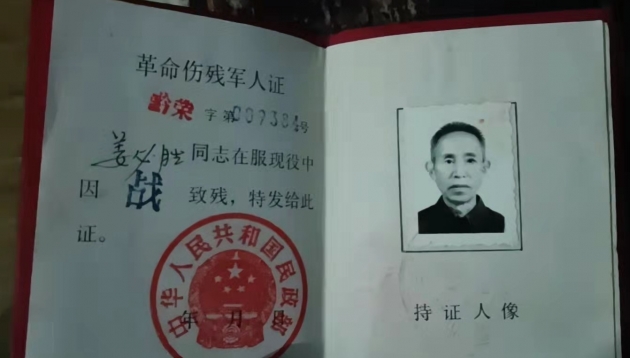 革命伤残军人证
黔荣 字 第007384号
姜必胜 同志在服现役中
因 战 致残，特发给此
证。
中华人民共和国民政部
年 月 日
持证人像